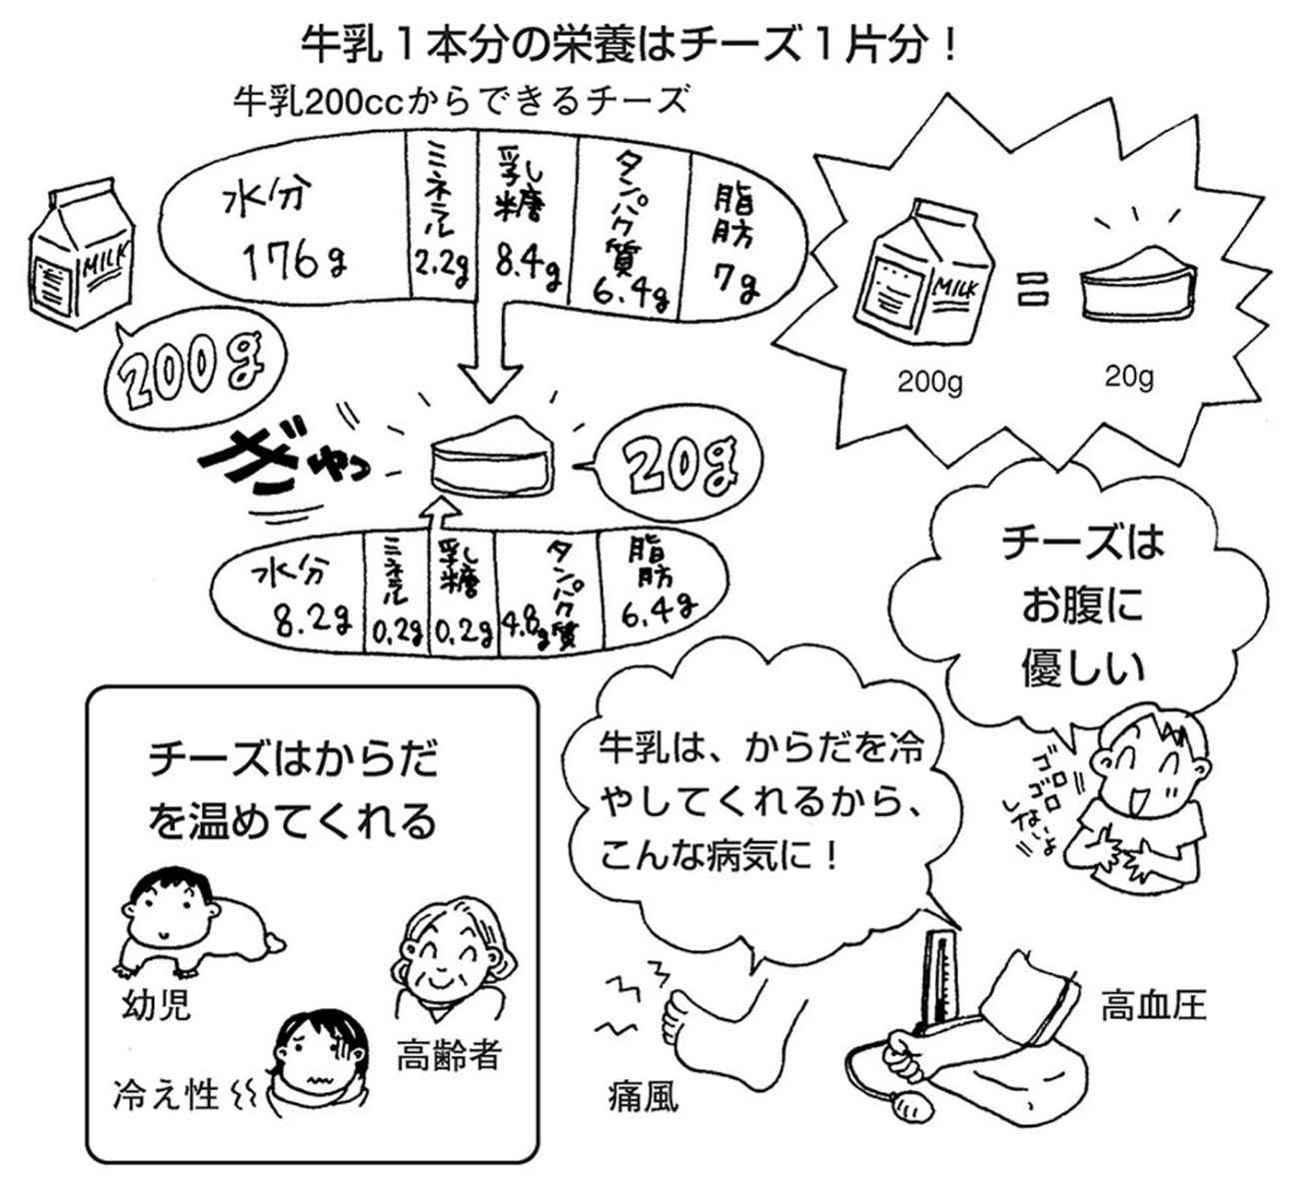 牛乳1本分の栄養はチーズ1片分！
牛乳200ccからできるチーズ
水分
176g
ミネラル
2.2g
乳糖
8.4g
タンパク質
6.4g
脂肪
7g
MILK
200g
MILK
=
200g
20g
ギュッ
20g
水分
8.2g
ミネラル
0.2g
乳糖
0.2g
タンパク質
4.8g
脂肪
6.4g
チーズは
お腹に
優しい
ゴロ
ゴロ
しないよ
チーズはからだ
を温めてくれる
幼児
高齢者
冷え性
牛乳は、からだを冷
やしてくれるから、
こんな病気に！
痛風
高血圧